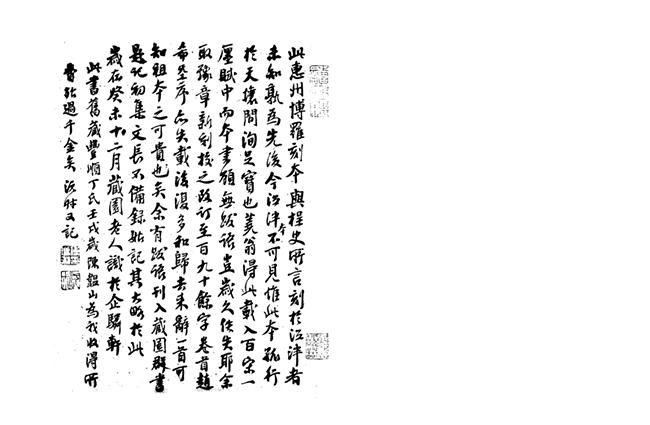 此惠州博羅刻本與桯史所言刻於江津者
未知孰為先後今江津本不可見惟此本孤行
於天壤間洵足寶也蕘翁得此載入百宋一
廛賦中而本書顧無跋語豈歲久佚失耶余
取豫章新刻校之改訂至百九十餘字卷首趙
希
序亦失載後復多和歸去來辭一首可
知祖本之可貴也矣余有跋語刊入藏園群書
題記初集文長不備錄始記其大略於此
歲在癸未十二月藏園老人識於企驎軒
此書舊藏豐順丁氏壬戌歲陳韞山為我收得所
費殆過千金矣沅叔又記